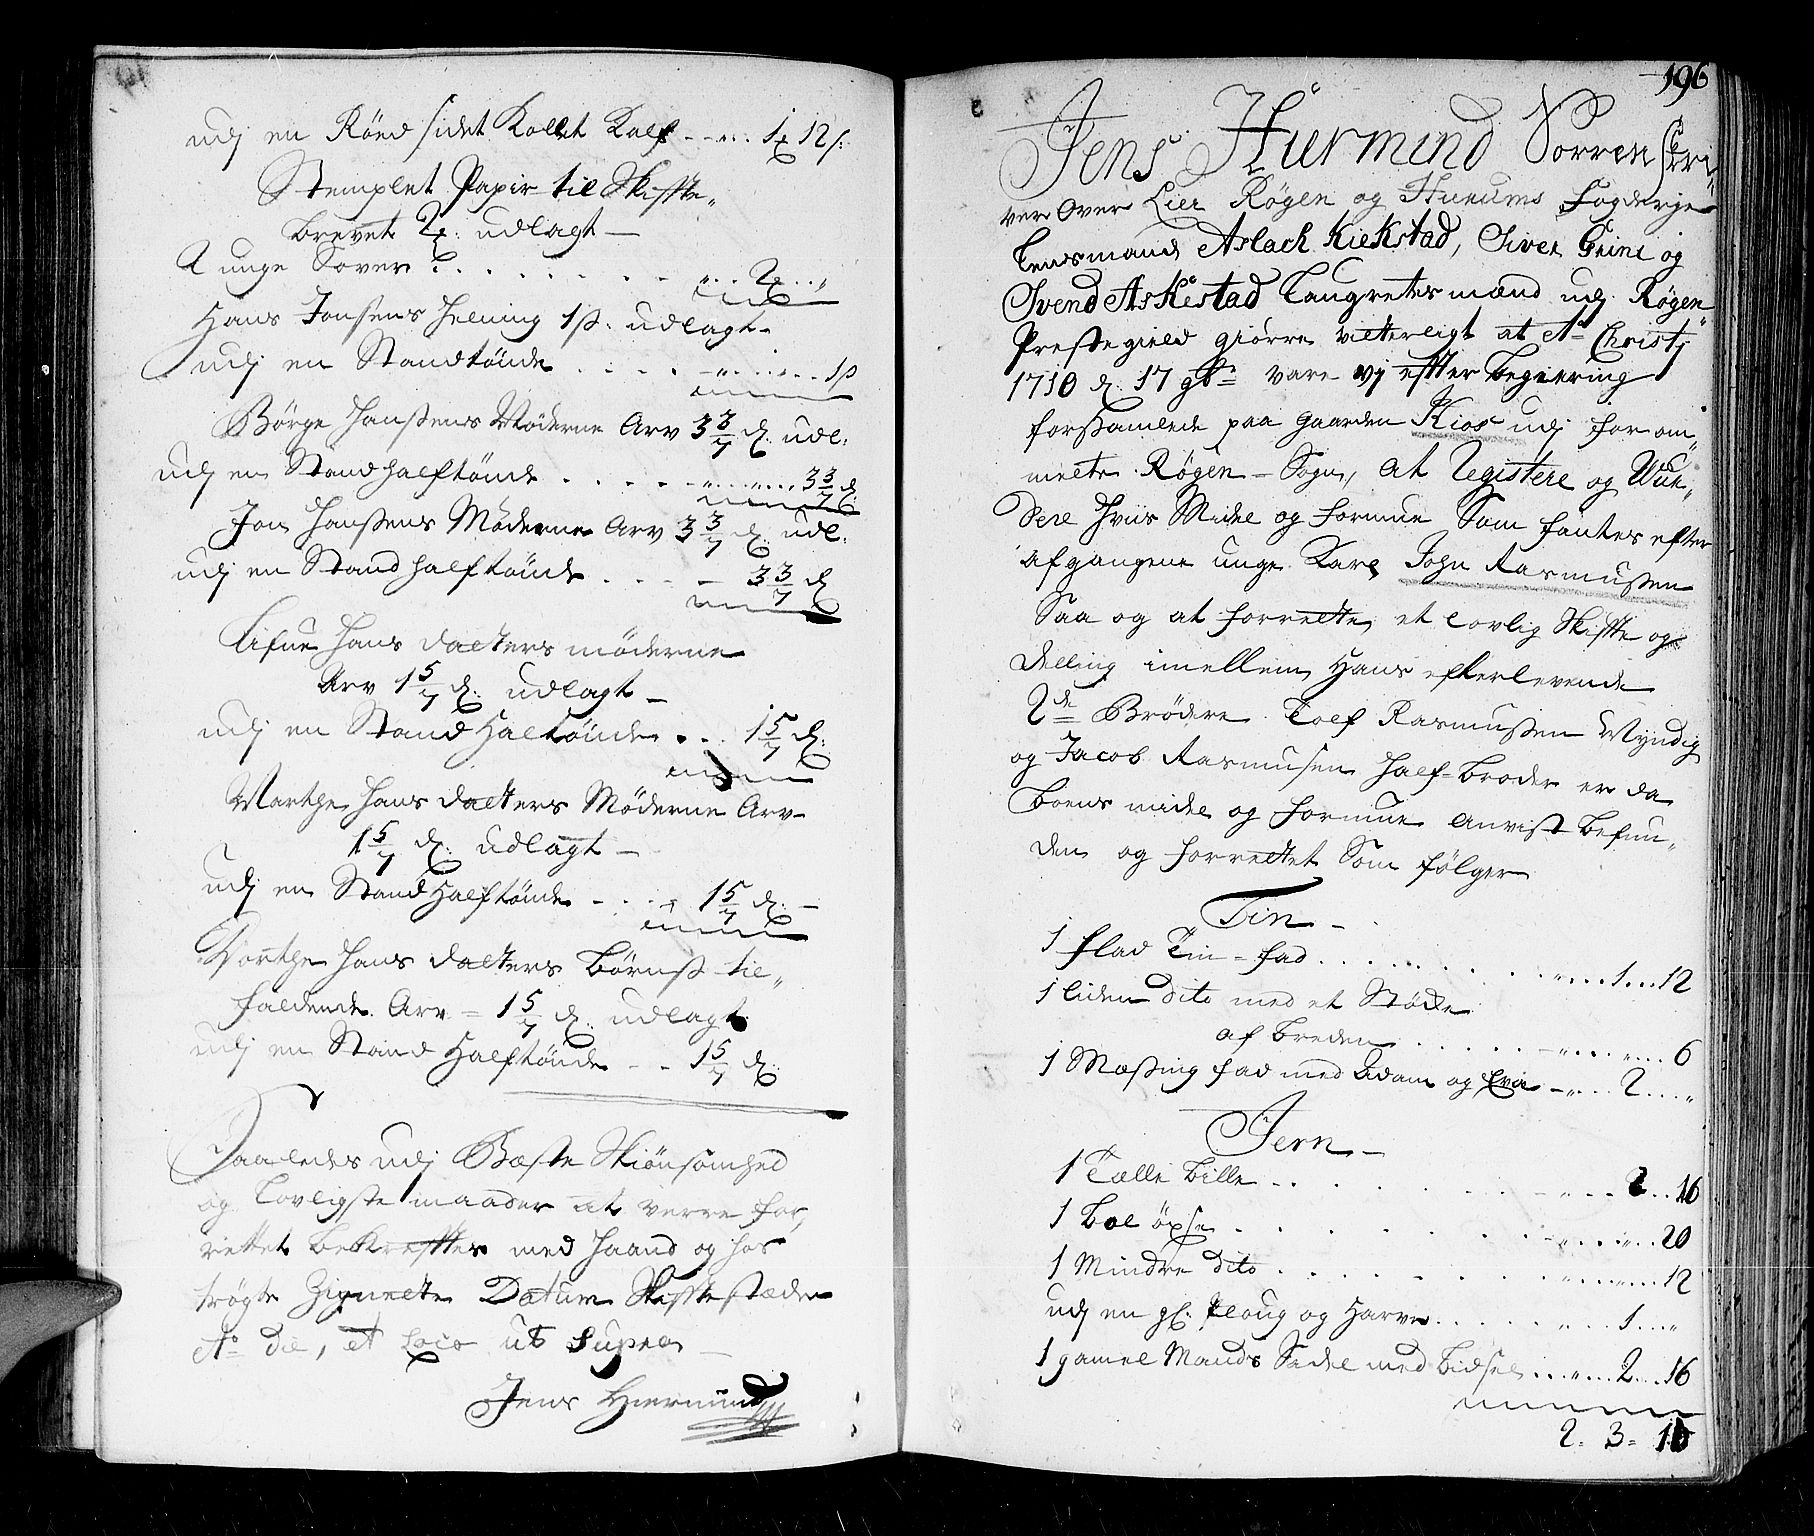 udj en Röed sidet Kollet Kalf - - ... 1 12 s:
Stemplet Papir til Skiffte,,
brevet 2 : udlagt —
2 unge Sover . . . . . . . . 2 ... "
Hans Jonsens helning 1 ß: udlagt
udj en Standtönde . . . . . . . . 1 ß
Börge Hanßens Möderne Arv 3 3/7 d: udl:
udj en Stand halftönde . . . . . . . 3 3/7 d
Jon Hanßens Möderne Arv 3 3/7 d: udl:
udj en Stand halftönde . . . . — 3 3/7 d
Hans datters möderne
Arv 1 5/7 d: udlagt —
udj en Stand Haltönde . . . 1 5/7 d:
Marthe Hans datters Möderne Arv-
1 5/7 d: udlagt —
udj en Stand Halftönde - . . . 1 5/7 d: —
Dorthe Hans datters börnß til,,
faldende Arv = 1 5/7 d: udlagt
udj en Stand Halftönde - . 1 5/7 d:
Saaledes udj Bæste Skiönsomhed
og lovligste maader at verre for,
rettet bekreffter med haand og hos
trögte Zignette Datum Skiffte stæden
Ao die, et Loco ut Supra —
Jens Hiermind
196
Jens Hiurmind Sorren Scri,,
ver over Lier Røgen og Hurums fogderje
Lensmand Aslach Kiekstad, Siver Grini og
Svend Askestad Laugrettes mænd udj Røgen
Preste gield giörre vitterligt at Ao Christj
1710 d. 17 9br vare vj effter begiering
forsamlede paa gaarden Kios udj for om,,
melte Røgen - Sogn, at Registere og Wur,,
dere hviis Midel og formue Som fantes efter
afgangene unge Karl John Rasmußen
Saa og at forrette, et lovlig Skiffte og
delling imellem Hans efterlevende
2de Brödre Tolf Rasmußen Myndig
og Jacob Rasmusen half-broder er da
boens midel og formue anvist befun,,
den og forrettet Som følger
Tin —
1 flad Tin = fad . . . . . . . . . . . . 1 ... 12
1 liden dito med et Støcke
af breden . . . . . . . . . . . 6
1 Meßing fad med Adam og Eva - ... 2 ... "
Jern —
1 Tælle bille . . . . . . . . . . 2 .. 16
1 bol öxse . . . . . . . . . . . . 20
1 Mindre dito . . . . . . . . . . . 12
udj en gl: Ploug og Harve . . . . . . . . 1 ... "
1 gamel Mands Sadel med bidsel ... ... 2 ... 16
2 = 3 = 10